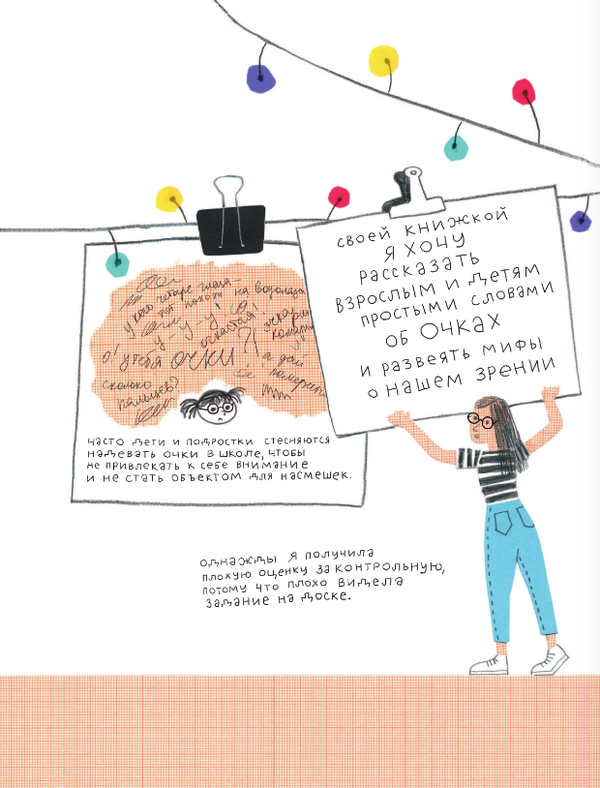 своей книжкой
я хочу
рассказать
взрослым и детям
простыми словами
об очках
и развеять мифы
о нашем зрении
у кого четыре глаза –
тот похож на водолаза
у-у-у!
очкастая!
о! у тебя очки?!
а дай
сколько
пальцев?
часто дети и подростки стесняются
надевать очки в школе, чтобы
не привлекать к себе внимание
и не стать объектом для насмешек.
однажды я получила
плохую оценку за контрольную,
потому что плохо видела
задание на доске.